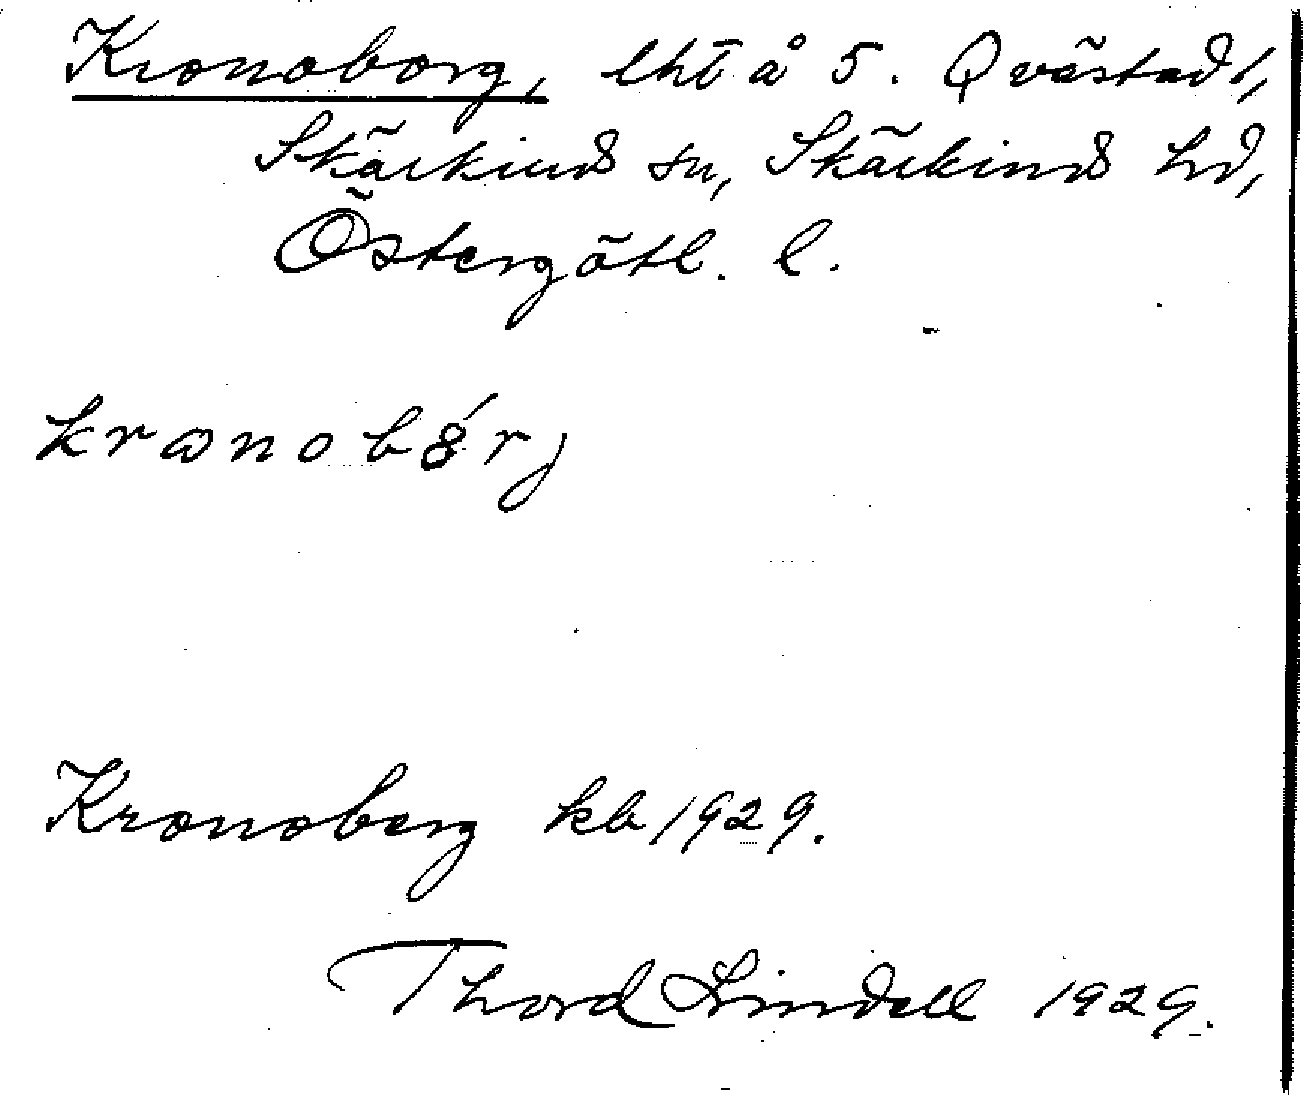 Kronoborg, lht å 5. Qvästad 1,
Skärkind sn, Skärkind hd,
Östergötl. l.
kronobórj
Kronoberg kb 1929.
Thord Lindell 1929.